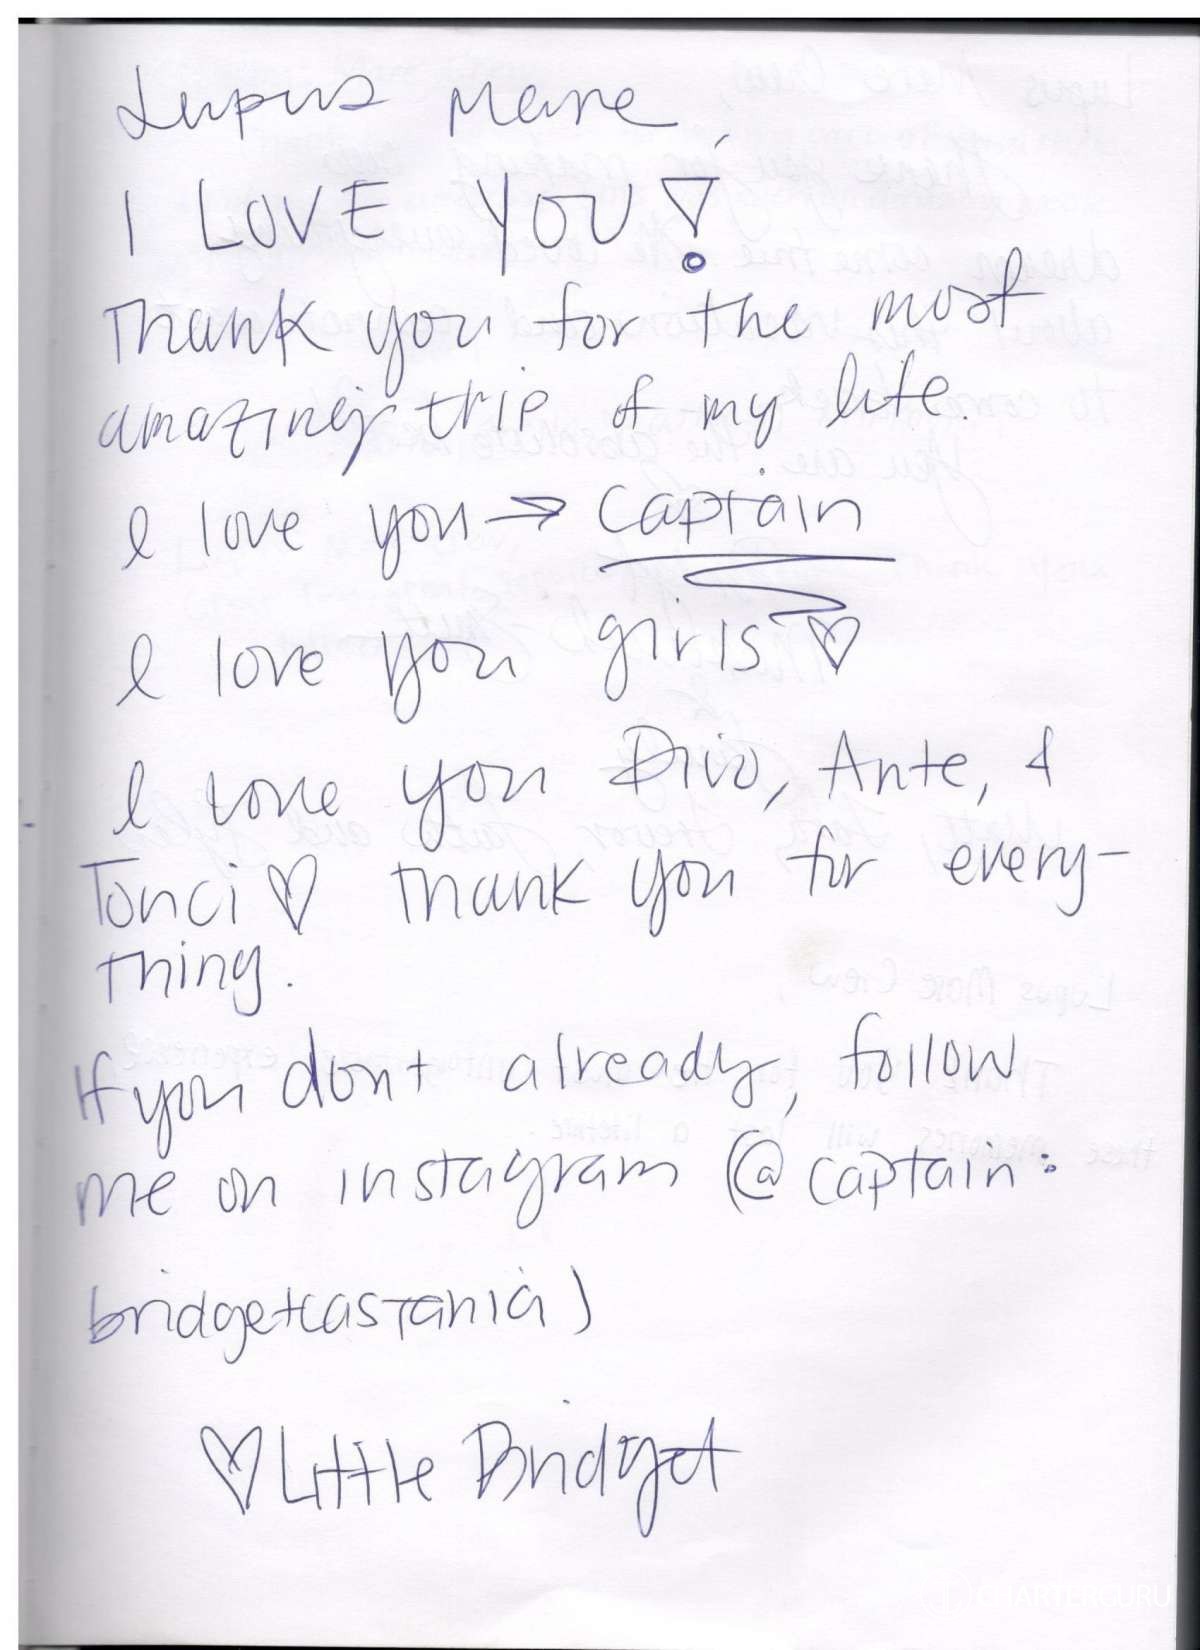 Lupus Mare,
I LOVE YOU!
Thank you for the most
amazing trip of my life.
I love you → captain
I love you girls ♡
I love you Divo, Ante, &
Tonci ♡ thank you for every-
thing.
If you dont already, follow
me on instagram (@captain.
bridgetcastania)
♡ Little Bridget
CHARTERGURU